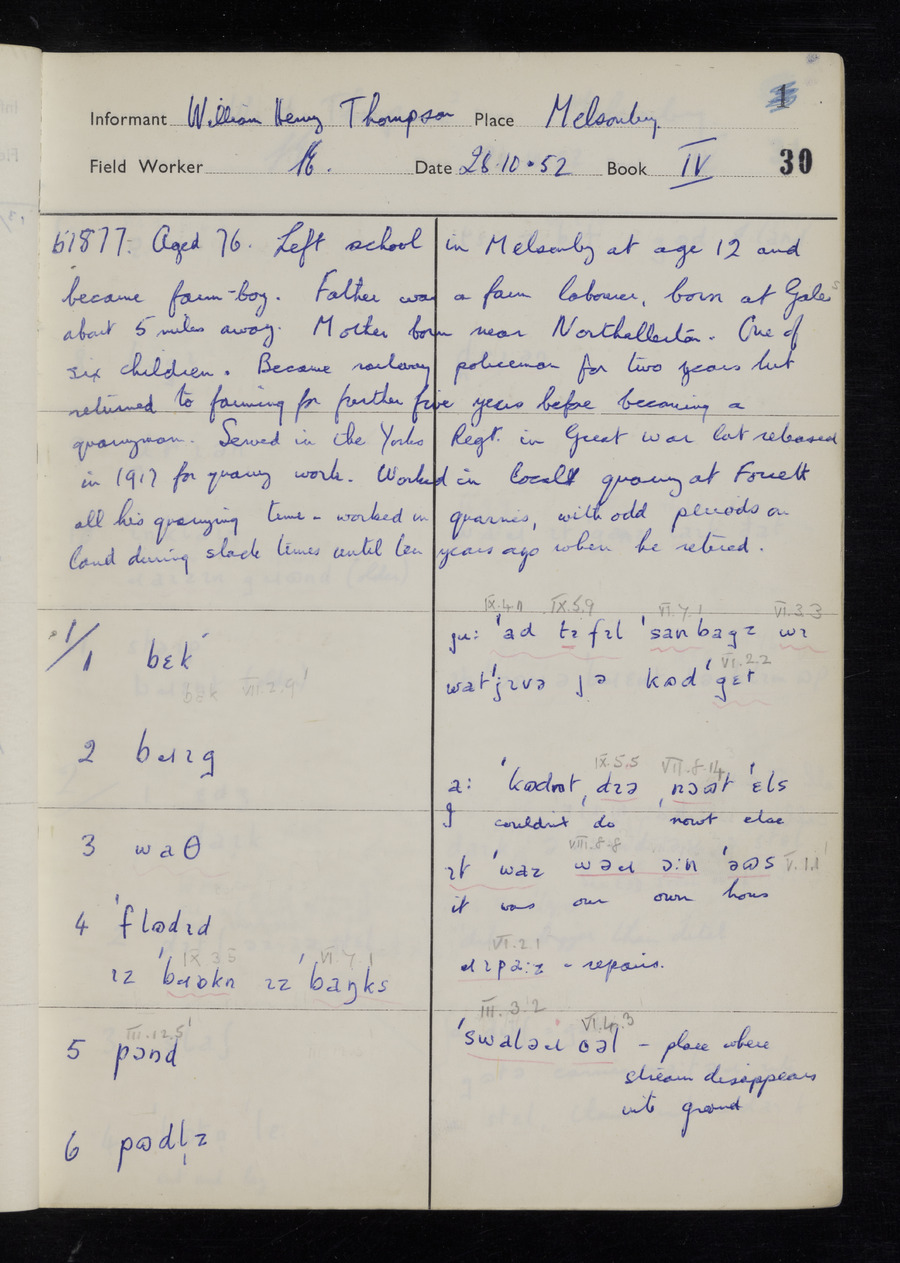 1
Informant William Henry Thompson Place Melsonby.
Field Worker Date 26.10.52 Book IV 30
b1877. Aged 76. Left school in Melsonby at age 12 and
became farm-boy. Father was a farm labourer, born at Gales
about 5 miles away. Mother born near Northallerton. One of
six children. Became railway policeman for two years but
returned to farming for further five years before becoming a
quarryman. Served in the Yorks Regt. in Great War but released
in 1917 for quarry work. Worked in local quarry at Forcett
all his quarrying time - worked in quarries, with odd periods on
land during slack times until ten years ago when he retired.
IX.5.9 VI.7.1 VI.3.3
1/1 bɛk
juː ˈad tɪ fɪl ˈsan bagz wɪ
bɛk VII.2.9
VI.2.2
watˈjɪvə jə kədˈgɛt
2 bɑɪɪg
IX.5.5 VII.8.14
aː ˈkʊdnt ˌdɪə ˌnəʊt ˈɛls
I couldn't do nowt else
3 waθ
VIII.8.8
ɪt ˈwaz wəɹ ɔːn ˈəʊs V.1.1
it was our own house
4 ˈflədɪd
IX.3.5 VI.7.1
ɪz ˈbɹʊkn ɪz ˈbaŋks
VI.2.1
ɹɪpaːz - repairs.
III.12.5
5 pɔnd
III.3.2 VI.4.3
ˈswaləɹ ʊəl - place where
stream disappears
into ground
6 pədl̩z